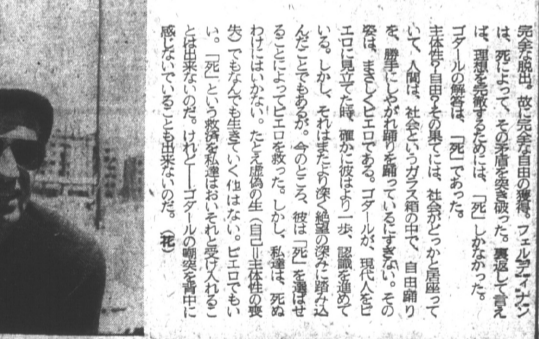 完全な脱出。故に完全な自由の獲得。フェルディナン
は、死によって、その矛盾を突き破った。裏返して言え
ば、理想を完徹するためには、「死」しかなかった。
ゴダールの解答は、「死」であった。
主体性!自由!その果てには、社会がどっかと居座って
いて、人間は、社会というガラス箱の中で、自由踊り
を、勝手にしやがれ踊りを踊っているにすぎない。その
姿は、まさしくピエロである。ゴダールが、現代人をピ
エロに見立てた時、確かに彼はより一歩、認識を進めて
いる。しかし、それはまたより深く絶望の深みに踏み込
んだことでもあるが。今のところ、彼は「死」を選ばせ
ることによってピエロを救った。しかし、私達は、死ぬ
わけにはいかない。たとえ虚偽の生(自己=主体性の喪
失)でもなんでも生きていく他はない。ピエロでもい
い。「死」という救済を私達はおいそれと受け入れるこ
とは出来ないのだ。けれど——ゴダールの嘲笑を背中に
感じないでいることも出来ないのだ。(花)